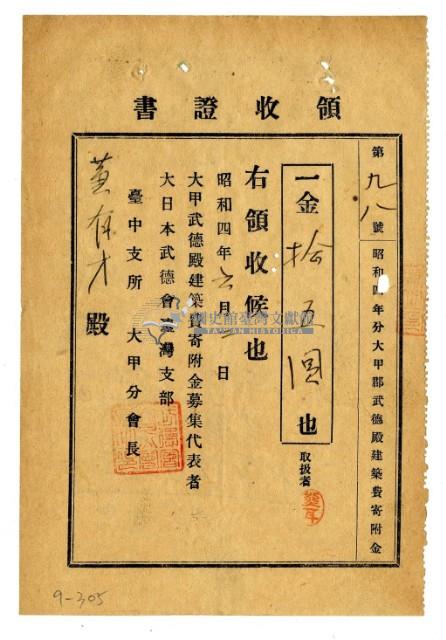 領收證書
第九八號 昭和四年分大甲郡武德殿建築費寄附金
一金拾五圓也
取扱者
右領收候也
昭和四年六月 日
大甲武德殿建築費寄附金募集代表者
大日本武德會臺灣支部
臺中支所 大甲分會長
黃有才殿
國史館臺灣文獻館
TAIWAN HISTORICA
9-305